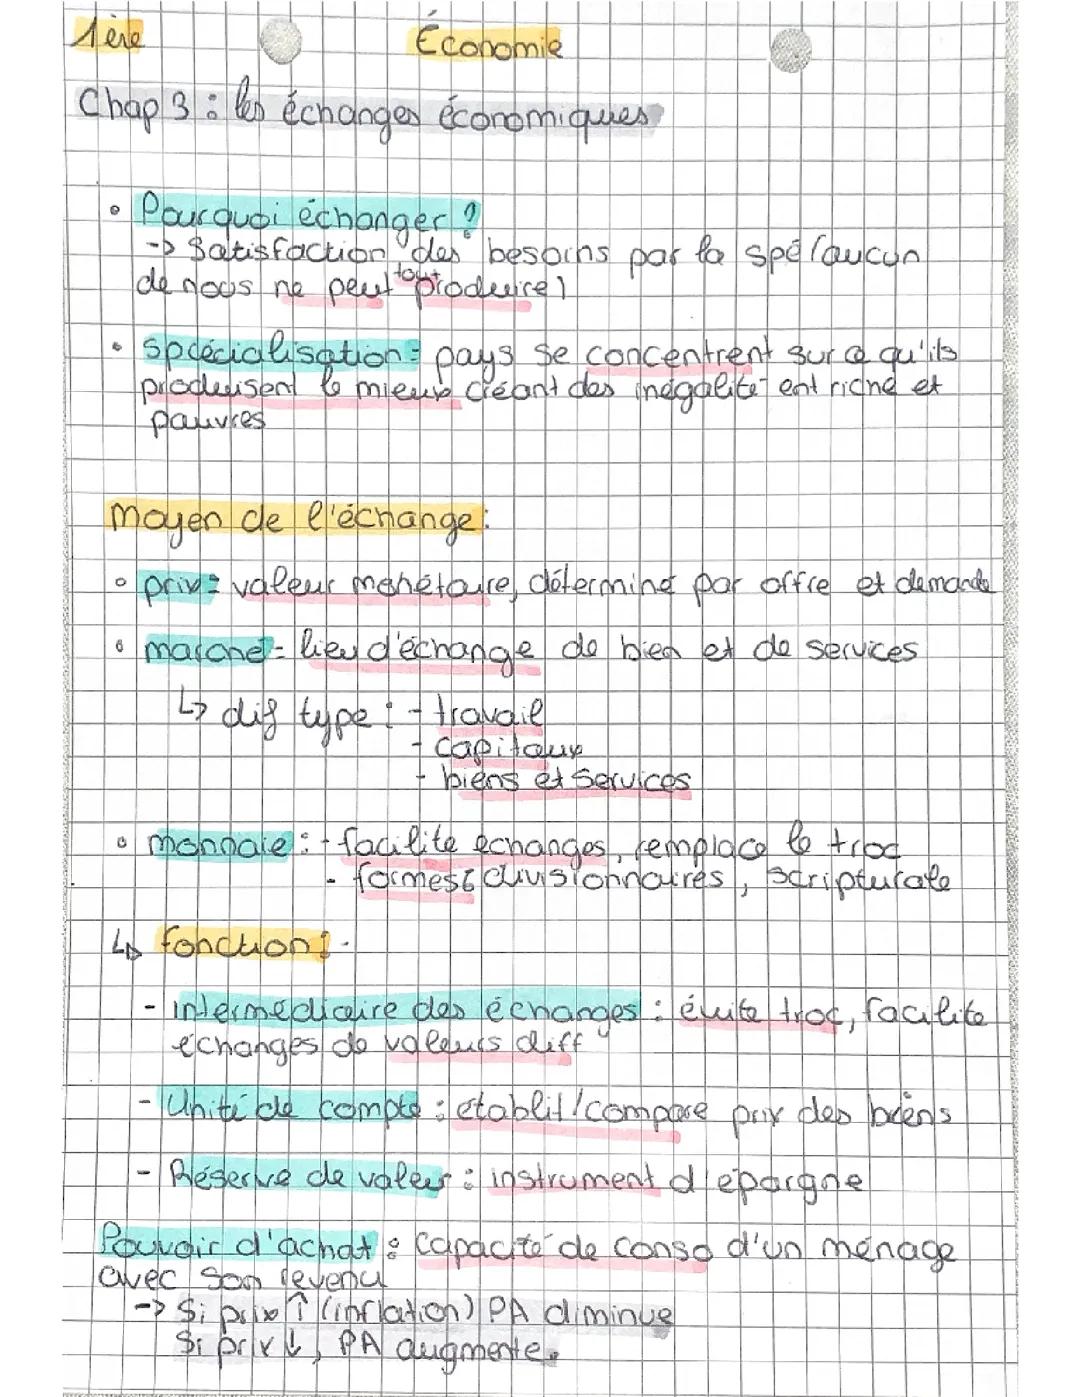 1ère Économie
Chap 3 : les échanges économiques
• Pourquoi échanger ?
-> Satisfaction des besoins par la spé (aucun
de nous ne peut tout produire)
• Spécialisation = pays se concentrent sur ce qu'ils
produisent le mieux créant des inégalité ent riche et
pauvres
Moyen de l'échange :
• prix = valeur monétaire, déterminé par offre et demande
• marché = lieu d'échange de bien et de services
↳ dif type : - travail
- capitaux
- biens et services
• monnaie : - facilite échanges, remplace le troc
- formes : divisionnaires, scripturale
↳ fonction : -
- intermédiaire des échanges : évite troc, facilite
échanges de valeurs diff
- Unité de compte : établit/compare prix des biens
- Réserve de valeur : instrument d'épargne
Pouvoir d'achat : capacité de conso d'un ménage
avec son revenu
-> Si prix ↑ (inflation) PA diminue
Si prix ↓, PA augmente.